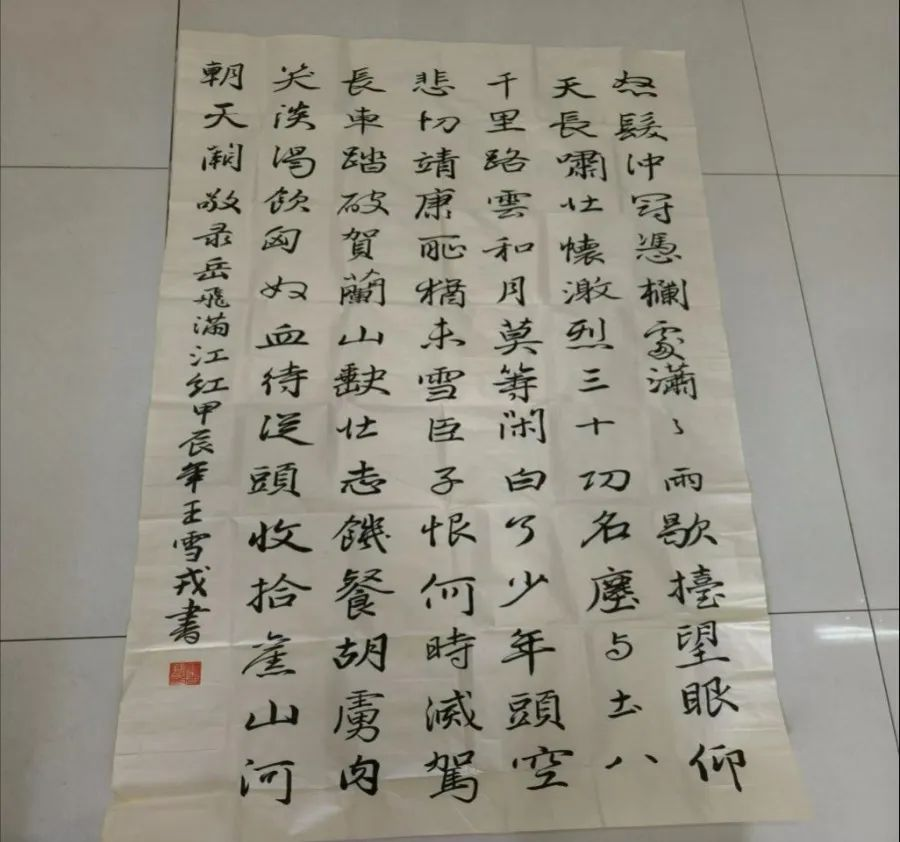 怒髮沖冠憑欄處瀟〻雨歇擡望眼仰
天長嘯壮懷激烈三十功名塵与土八
千里路雲和月莫等閑白了少年頭空
悲切靖康恥猶未雪臣子恨何時滅駕
長車踏破賀蘭山缺壮志饑餐胡虜肉
笑談渴飲匈奴血待從頭收拾舊山河
朝天闕敬录岳飛滿江紅甲辰年王雪戎書